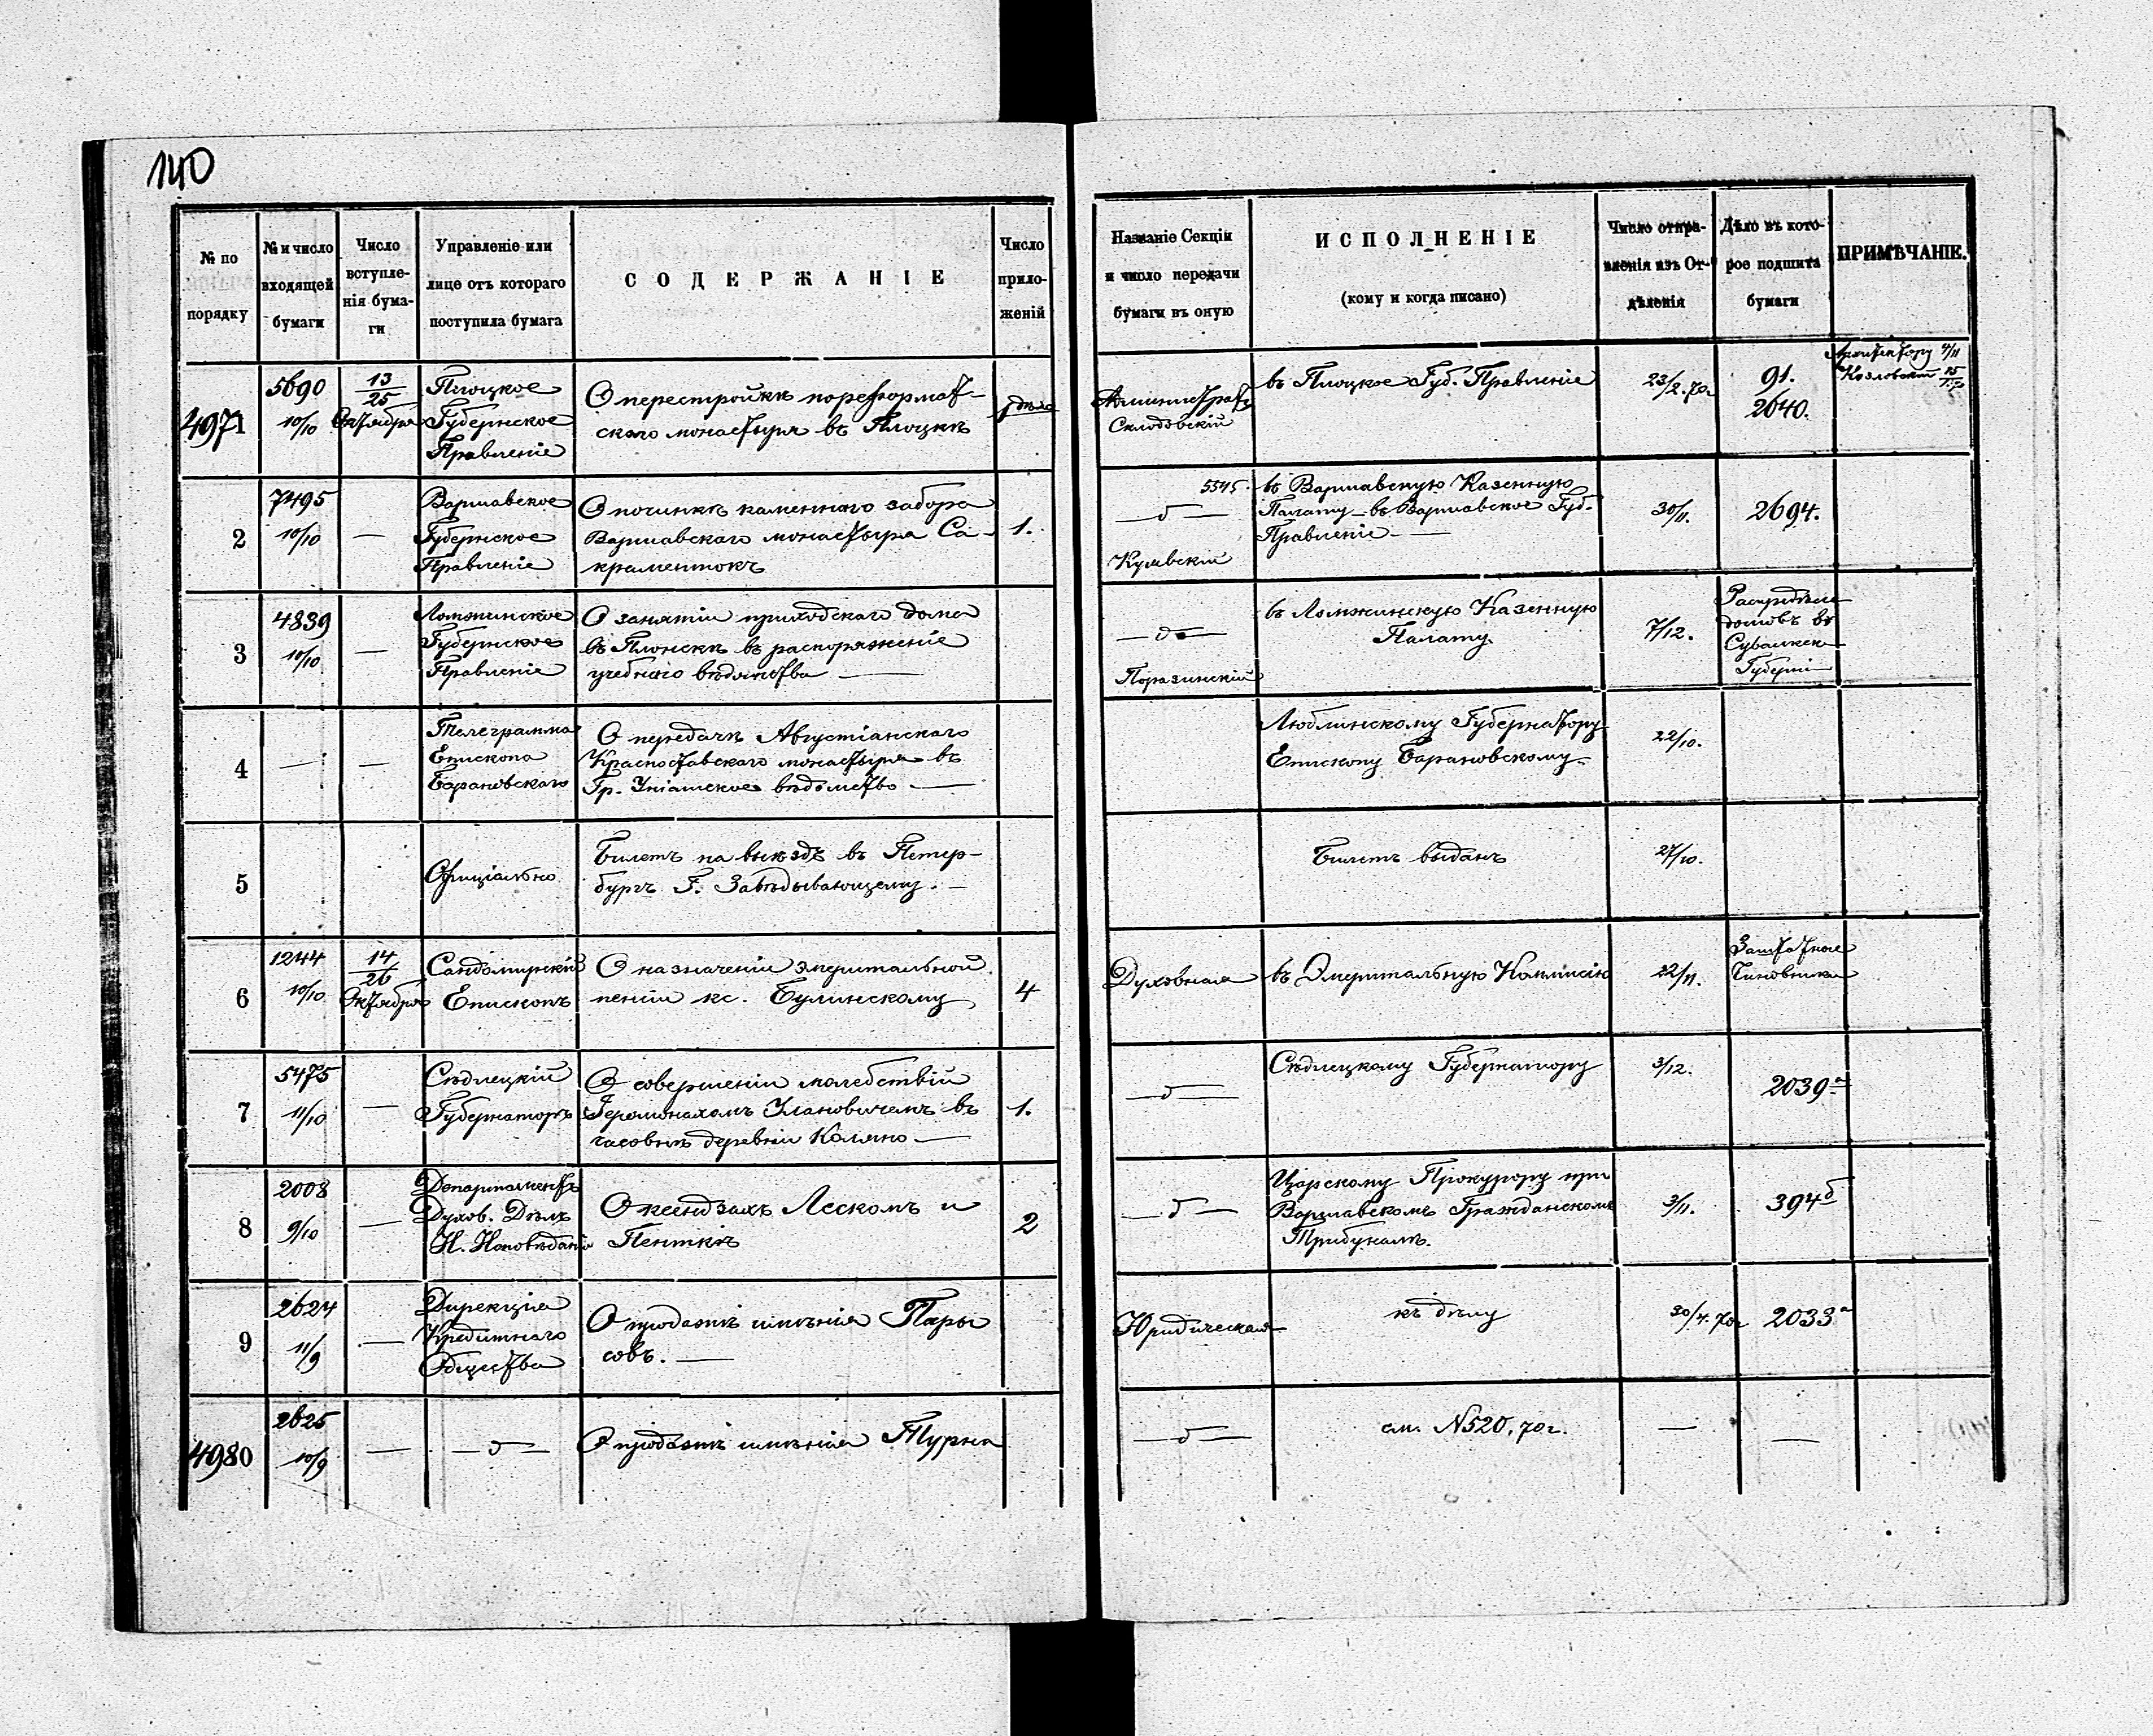 140
№ по порядку
№ и число входящей бумаги
Число вступле-нія бума-ги
Управленіе или лице отъ котораго поступила бумага
СОДЕРЖАНІЕ
Число прило-женій
Названіе Секціи и число передачи бумаги въ оную
ИСПОЛНЕНІЕ
(кому и когда писано)
Число отпра-вленія изъ От-дѣленія
Дѣло въ кото-рое подшита бумаги
ПРИМѢЧАНІЕ.
4971
5690
10/10
13/25
Октября
Плоцкое
Губернское
Правленіе
О перестройкѣ пореформат-
скаго монастыря въ Плоцкѣ
Администрат
Склодовскій
въ Плоцкое Губ. Правленіе
23/2. 70г
91.
2640.
Архитектору 4/11
Козловскій
2
7495
10/10
—
Варшавское
Губернское
Правленіе
О починкѣ каменнаго забора
Варшавскаго монастыря Са-
краментокъ
1.
5545.
— д —
Куявскій
въ Варшавскую Казенную
Палату — въ Варшавское Губ.
Правленіе —
30/11.
2694.
3
4839
10/10
—
Ломжинское
Губернское
Правленіе
О занятіи приходскаго дома
въ Плонскѣ въ распоряженіе
учебнаго вѣдомства —
— д —
Поразинскій
въ Ломжинскую Казенную
Палату.
7/12.
домовъ въ
Сувалкск
Губерніи
4
—
—
Телеграмма
Епископа
Барановскаго
О передачѣ Августіанскаго
Красноставскаго монастыря въ
Гр. Уніатское вѣдомство —
Люблинскому Губернатору
Епископу Барановскому —
22/10.
5
Офиціально
Билетъ на выѣздъ въ Петер-
бургъ Г. Завѣдывающему. —
Билетъ выданъ
27/10.
6
1244
10/10
14/26
Октября
Сандомирскій
Епископъ
О назначеніи эмеритальной
пенсіи кс. Булинскому
4
Духовная
въ Эмеритальную Коммисію
22/11.
Заштатные
Чиновники
7
5475
11/10
—
Сѣдлецкій
Губернаторъ
О совершеніи молебствій
Іеромонахомъ Улановичемъ въ
часовнѣ деревни Коляно —
1.
— д —
Сѣдлецкому Губернатору
3/12.
2039а
8
2008
9/10
—
Департаментъ
Духов. Дѣлъ
И. Исповѣданій
О ксендзахъ Лескомъ и
Пенткѣ
2
— д —
Царскому Прокурору при
Варшавскомъ Гражданскомъ
Трибуналѣ.
3/11.
394б
9
2624
11/9
—
Дирекція
Кредитнаго
Общества
О продажѣ имѣнія Пары
совъ. —
Юридическая
къ дѣлу
30/4. 70г
2033а
4980
2625
10/9
—
— д —
О продажѣ имѣнія Турна
— д —
см. N520, 70г.
—
—